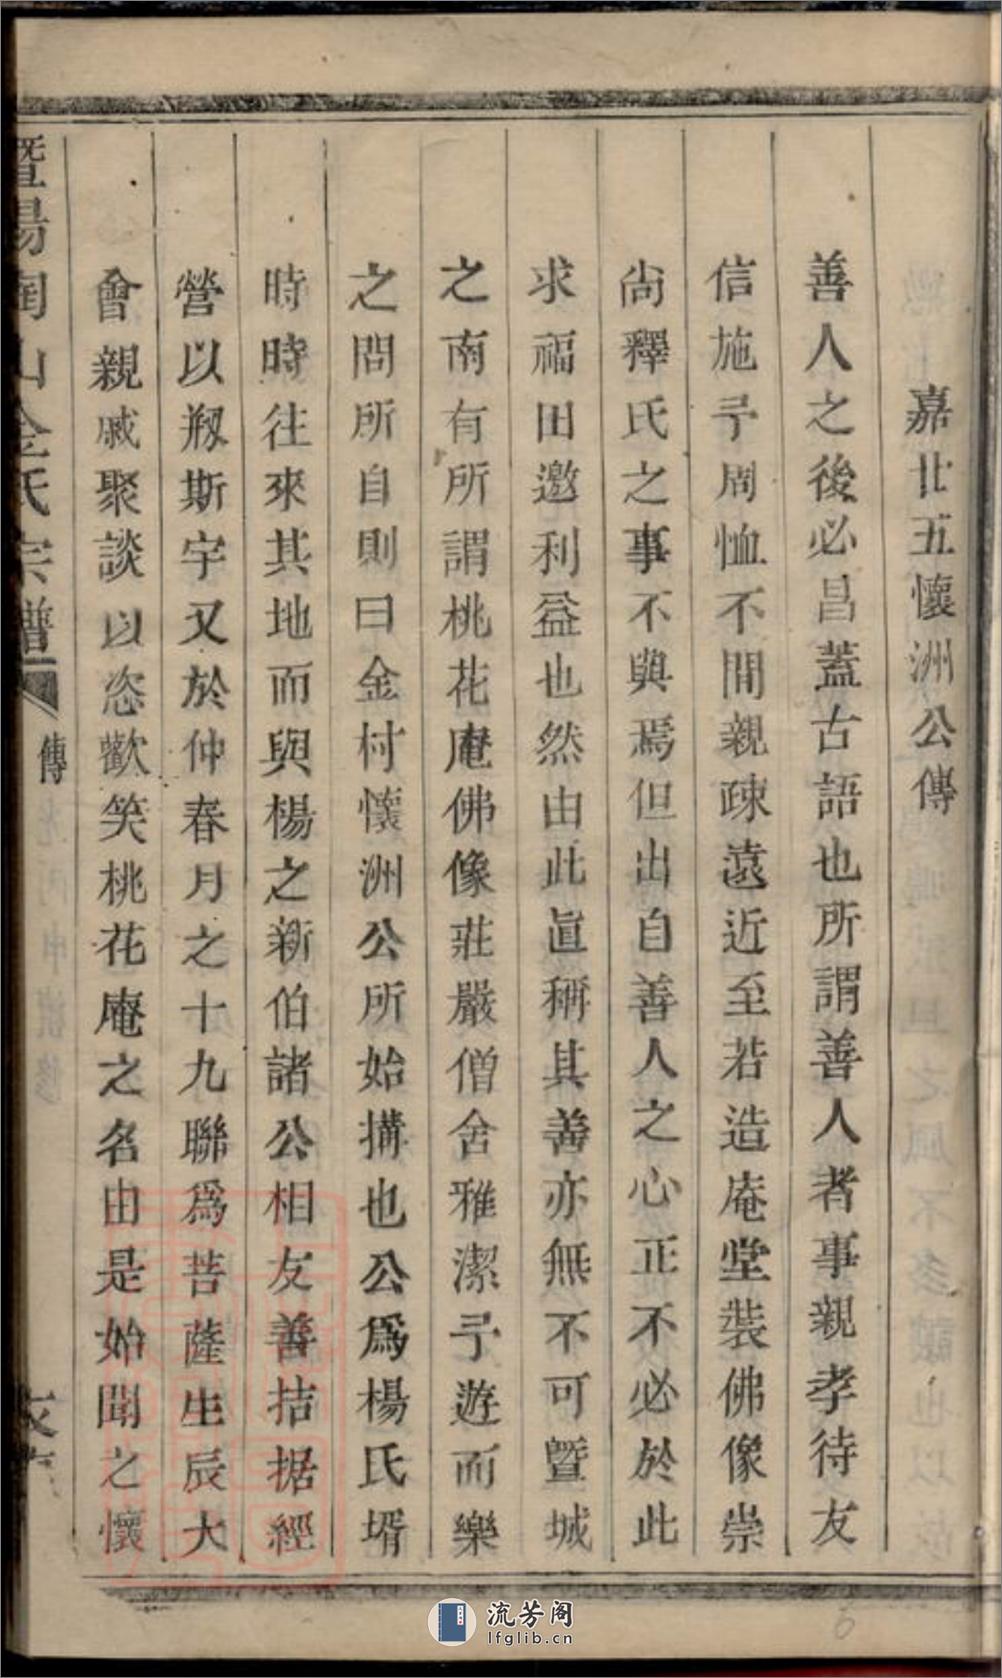 嘉廿五懷洲公傳
善人之後必昌蓋古語也所謂善人者事親孝待友
信施予周恤不間親疎遠近至若造庵堂裝佛像崇
尚釋氏之事不與焉但出自善人之心正不必於此
求福田邀利益也然由此眞稱其善亦無不可暨城
之南有所謂桃花庵佛像莊嚴僧舍雅潔予遊而樂
之問所自則曰金村懷洲公所始搆也公爲楊氏壻
時時往來其地而與楊之新伯諸公相友善拮据經
營以剏斯宇又於仲春月之十九聯爲菩薩生辰大
會親戚聚談以恣歡笑桃花庵之名由是始聞之懷
暨陽陶山金氏宗譜
傳
流芳阁
lfglib.cn